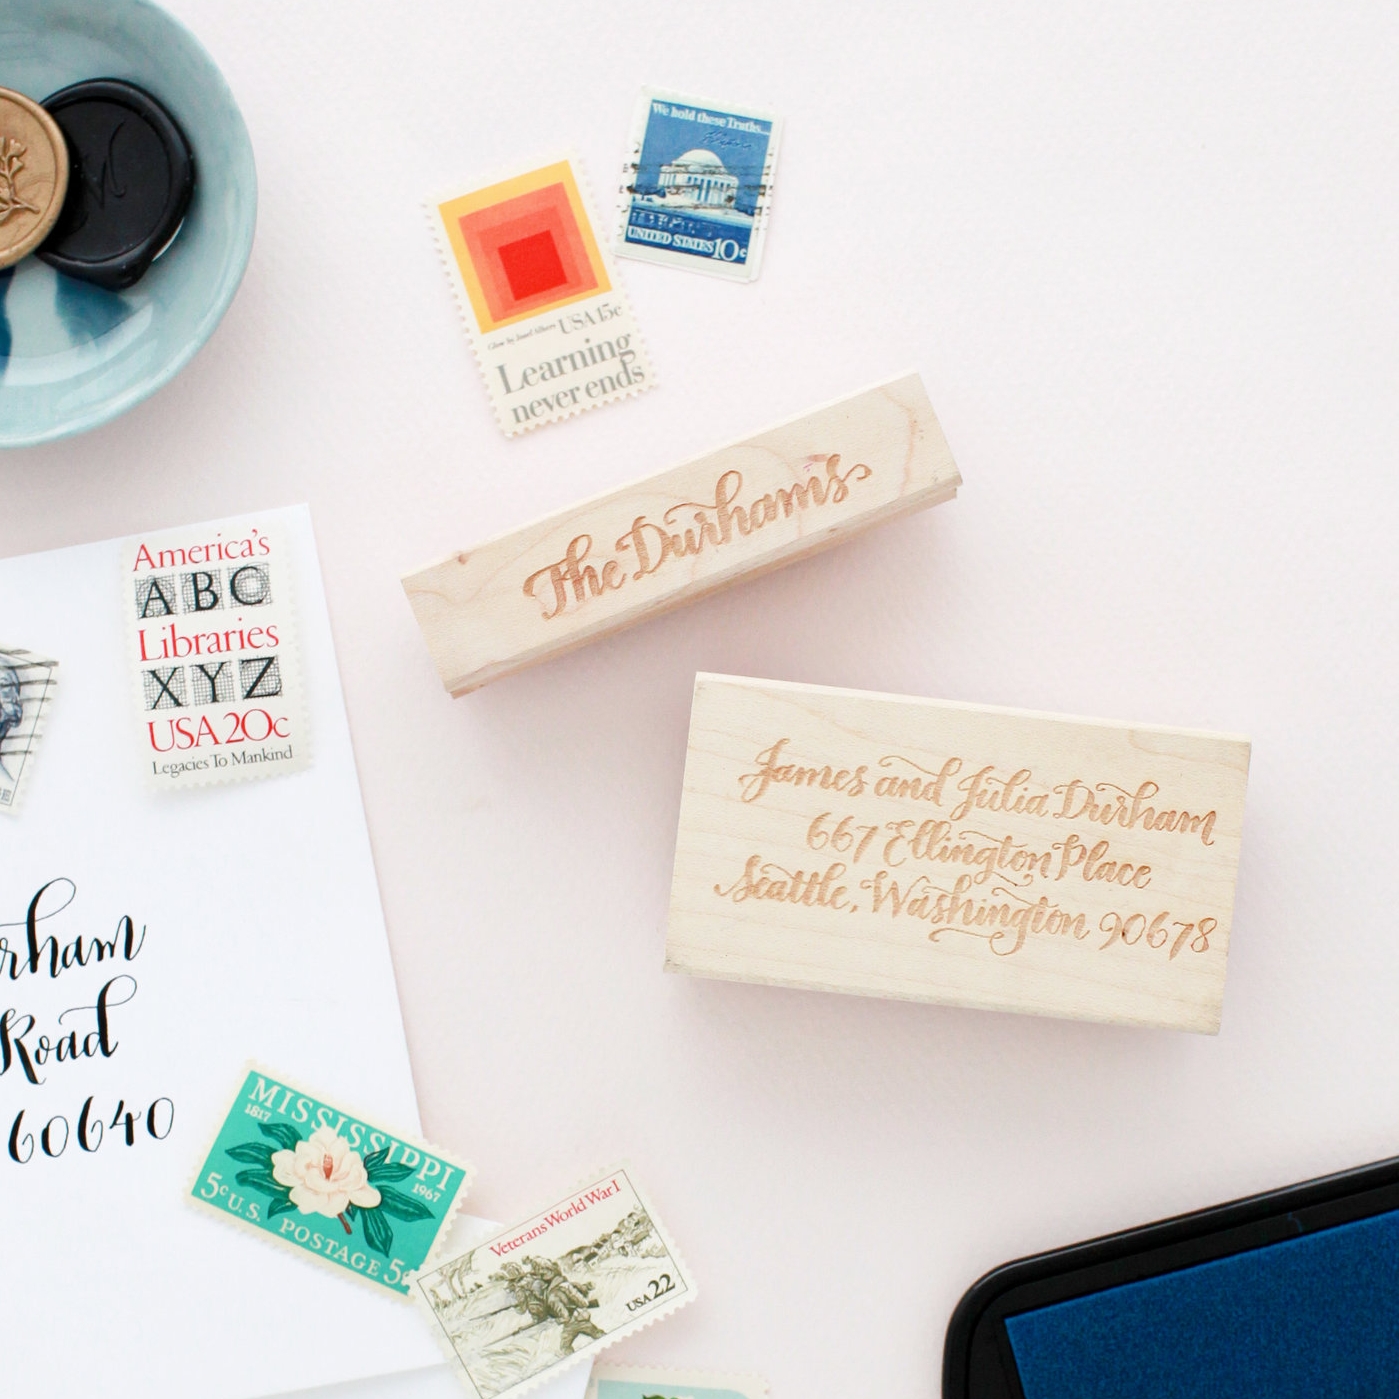 We hold these Truths...
UNITED STATES 10c
Glow by Josef Albers USA 15c
Learning
never ends
The Durhams
America's
ABC
Libraries
XYZ
USA 20c
Legacies To Mankind
James and Julia Durham
667 Ellington Place
Seattle, Washington 90678
rham
Road
60640
MISSISSIPPI
1817
1967
5c U.S. POSTAGE 5c
Veterans World War I
USA 22